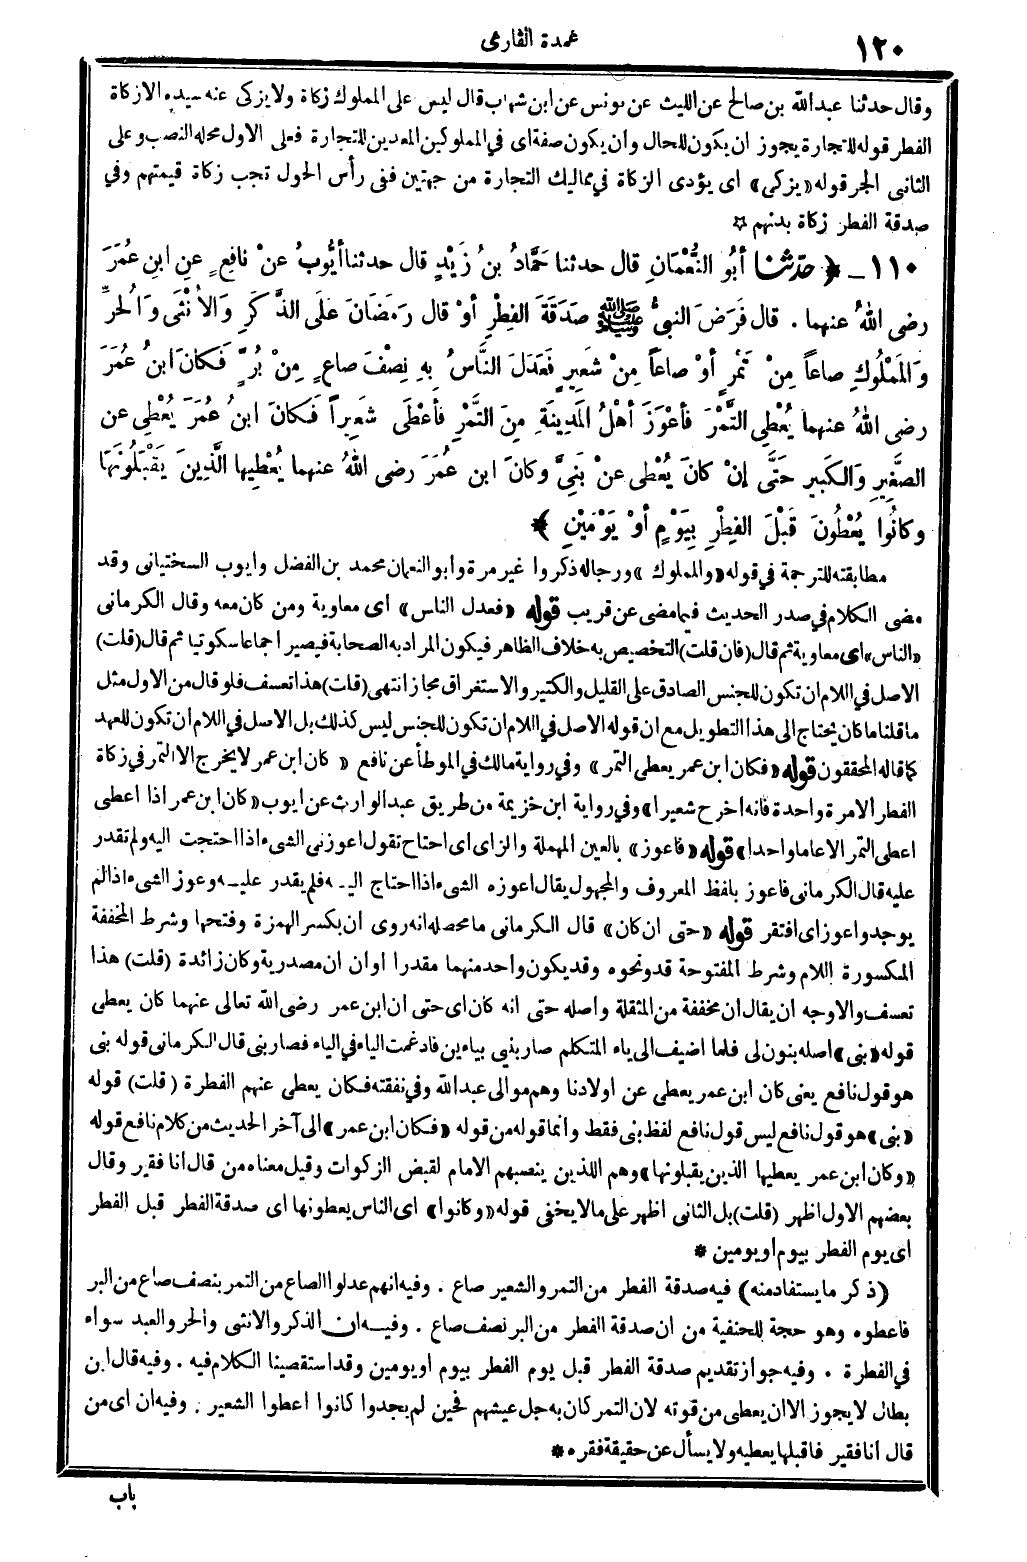 ١٢٠
عمدة القارى
وقال حدثنا عبدالله بن صالح عن الليث عن يونس عن ابن شهاب قال ليس على المملوك زكاة ولا يزكى عنه سيده الا زكاة
الفطر قوله للتجارة يجوز ان يكون للحال وان يكون صفة اى في المملوكين المعدين للتجارة فعلى الاول محله النصب وعلى
الثانى الجر قوله «يزكى» اى يؤدى الزكاة في مماليك التجارة من جهتين ففى رأس الحول تجب زكاة قيمتهم وفي
صدقة الفطر زكاة بدنهم ☆
١١٠ ـ ﴿ حَدَّثَنَا أَبُو النُّعْمَانِ قال حدثنا حَمَّادُ بنُ زَيْدٍ قال حدثنا أَيُّوبُ عنْ نافِعٍ عنِ ابنِ عُمَرَ
رضى اللهُ عنهما . قال فَرَضَ النبىُّ ﷺ صَدَقَةَ الفِطْرِ أوْ قال رَمَضَانَ عَلَى الذَّكَرِ وَالأُنْثَى وَالحرِّ
وَالمَمْلُوكِ صاعاً مِنْ تَمْرٍ أوْ صاعَاً مِنْ شَعِيرٍ فَعَدَلَ النَّاسُ بِهِ نِصْفَ صاعٍ مِنْ بُرٍّ فَكانَ ابنُ عُمَرَ
رضى اللهُ عنهما يُعْطِى التَّمْرَ فأعْوَزَ أهْلُ المَدِينَةِ مِنَ التَّمْرِ فأعْطَى شَعِيراً فَكانَ ابنُ عُمَرَ يُعْطِى عن
الصَّغِيرِ وَالكَبِيرِ حَتَّى إنْ كانَ يُعْطِى عنْ بَنِىَّ وكانَ ابن عُمَرَ رضى اللهُ عنهما يُعْطِيها الَّذِينَ يَقْبَلُونَهَا
وكانُوا يُعْطُونَ قَبْلَ الفِطْرِ بِيَوْمٍ أوْ يَوْمَيْنِ ﴾ *
مطابقته للترجمة في قوله «والمملوك» ورجاله ذكروا غير مرة وابو النعمان محمد بن الفضل وايوب السختيانى وقد
مضى الكلام في صدر الحديث فيما مضى عن قريب قوله «فعدل الناس» اى معاوية ومن كان معه وقال الكرمانى
«الناس» اى معاوية ثم قال (فان قلت) التخصيص به خلاف الظاهر فيكون المراد به الصحابة فيصير اجماعا سكوتيا ثم قال (قلت)
الاصل في اللام ان تكون للجنس الصادق على القليل والكثير والاستغراق مجاز انتهى (قلت) هذا تعسف فلو قال من الاول مثل
ما قلنا ما كان يحتاج الى هذا التطويل مع ان قوله الاصل في اللام ان تكون للجنس ليس كذلك بل الاصل في اللام ان تكون للعهد
كما قاله المحققون قوله «فكان ابن عمر يعطى التمر» وفي رواية مالك في الموطأ عن نافع «كان ابن عمر لا يخرج الا التمر في زكاة
الفطر الا مرة واحدة فانه اخرج شعيرا» وفي رواية ابن خزيمة من طريق عبد الوارث عن ايوب «كان ابن عمر اذا اعطى
اعطى التمر الا عاما واحدا» قوله «فاعوز» بالعين المهملة والزاى اى احتاج تقول اعوزنى الشىء اذا احتجت اليه ولم تقدر
عليه قال الكرمانى فاعوز بلفظ المعروف والمجهول يقال اعوزه الشىء اذا احتاج اليه فلم يقدر عليه وعوز الشىء اذا لم
يوجد واعوز اى افتقر قوله «حتى ان كان» قال الكرمانى ما محصله انه روى ان بكسر الهمزة وفتحها وشرط المخففة
المكسورة اللام وشرط المفتوحة قد ونحوه وقد يكون واحد منهما مقدرا او ان ان مصدرية وكان زائدة (قلت) هذا
تعسف والاوجه ان يقال ان مخففة من المثقلة واصله حتى انه كان اى حتى ان ابن عمر رضى الله تعالى عنهما كان يعطى
قوله «بنى» اصله بنون لى فلما اضيف الى ياء المتكلم صار بنيى بياءين فادغمت الياء في الياء فصار بنى قال الكرمانى قوله بنى
هو قول نافع يعنى كان ابن عمر يعطى عن اولادنا وهم موالى عبد الله وفي نفقته فكان يعطى عنهم الفطرة (قلت) قوله
«بنى» هو قول نافع ليس قول نافع لفظ بنى فقط وانما قوله من قوله «فكان ابن عمر» الى آخر الحديث من كلام نافع قوله
«وكان ابن عمر يعطيها الذين يقبلونها» وهم اللذين ينصبهم الامام لقبض الزكوات وقيل معناه من قال انا فقير وقال
بعضهم الاول اظهر (قلت) بل الثانى اظهر على ما لا يخفى قوله «وكانوا» اى الناس يعطونها اى صدقة الفطر قبل الفطر
اى يوم الفطر بيوم او يومين *
(ذكر ما يستفاد منه) فيه صدقة الفطر من التمر والشعير صاع . وفيه انهم عدلوا الصاع من التمر بنصف صاع من البر
فاعطوه وهو حجة للحنفية من ان صدقة الفطر من البر نصف صاع . وفيه ان الذكر والانثى والحر والعبد سواء
في الفطرة . وفيه جواز تقديم صدقة الفطر قبل يوم الفطر بيوم او يومين وقد استقصينا الكلام فيه . وفيه قال ابن
بطال لا يجوز الا ان يعطى من قوته لان التمر كان به جل عيشهم فحين لم يجدوا كانوا اعطوا الشعير . وفيه ان اى من
قال انا فقير فاقبلها يعطيه ولا يسأل عن حقيقة فقره *
باب